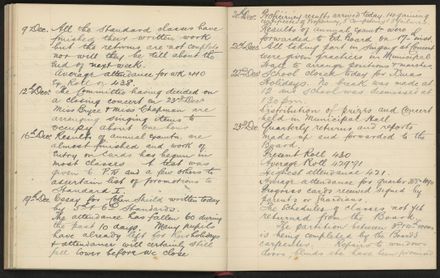 9th Dec. All the Standard classes have
finished their written work
but the returns are not complete
nor will they be till about the
end of next week.
Average attendance for wk 440
Ex Roll of 438.
12th Dec. The Committee having decided on
a closing concert on 23rd Dec.
Miss Bryce & Miss Chapman are
arranging singing items to
occupy about one hour.
16th Dec. Results of annual exams are
almost finished and work of
entry on cards has begun in
most classes. A test was
given to P.4 and a few others to
ascertain list of promotions to
Standard I.
19th Dec. Essay for shield written today
by Standards.
The attendance has fallen 60 during
the past 10 days. Many pupils
have already left for the holidays
& attendance will certainly still
fall lower before we close.
Proficiency results arrived today
of Proficiency & Competency
Results of annual exam to were
forwarded to the Board on 19th inst.
All taking part in Singing at Concert
were given practices in Municipal
Hall & arrange positions &
Dec. School closed today for Xmas
holidays. A break was made at
12 and school was dismissed at
1.30 pm.
Distribution of prizes and Concert
held in Municipal Hall.
23rd Dec. Quarterly returns and reports
made up and forwarded to the
Board.
Present Roll 480
Average Roll
Highest attendance 431.
Average attendance for Quarter
Progress cards received signed by
parents or Guardians.
The Schedules of classes not yet
returned from the Board.
The partition between rooms
is being completed by the Board's
carpenters. Repairs to windows
doors blinds also have been